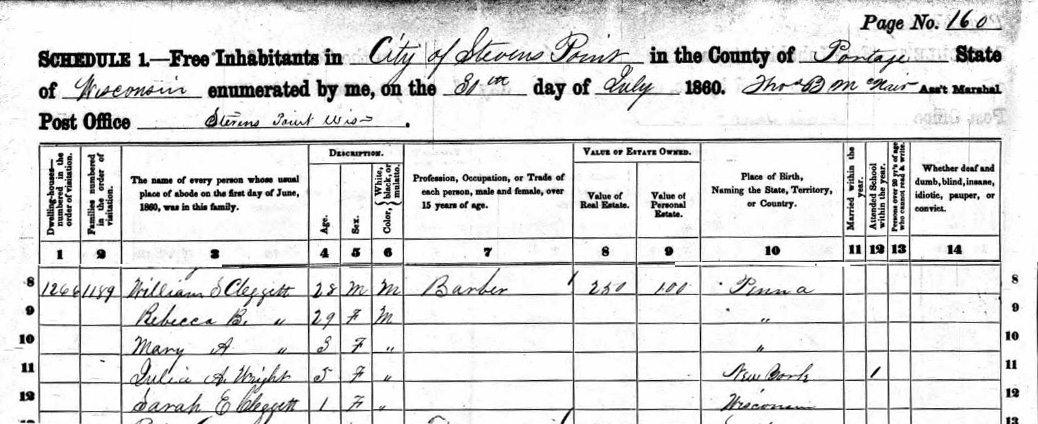 Page No. 160
SCHEDULE 1.—Free Inhabitants in City of Stevens Point in the County of Portage State
of Wisconsin enumerated by me, on the 30th day of July 1860. Thos B McNair Ass't Marshal
Post Office Stevens Point Wis .
Dwelling-houses—numbered in the order of visitation.
Families numbered in the order of visitation.
The name of every person whose usual place of abode on the first day of June, 1860, was in this family.
DESCRIPTION.
Age.
Sex.
Color, { White, black, or mulatto.
Profession, Occupation, or Trade of each person, male and female, over 15 years of age.
VALUE OF ESTATE OWNED.
Value of Real Estate.
Value of Personal Estate.
Place of Birth, Naming the State, Territory, or Country.
Married within the year.
Attended School within the year.
Persons over 20 y'rs of age who cannot read & write.
Whether deaf and dumb, blind, insane, idiotic, pauper, or convict.
1 2 3 4 5 6 7 8 9 10 11 12 13 14
8 1266 1189 William S Cleggett 28 M M Barber 1 250 100 Penna 8
9 Rebecca B. " 29 F M " 9
10 Mary A " 3 F " " 10
11 Julia A. Wright 5 F " New York 1 11
12 Sarah E Cleggett 1 F " Wisconsin 12
13